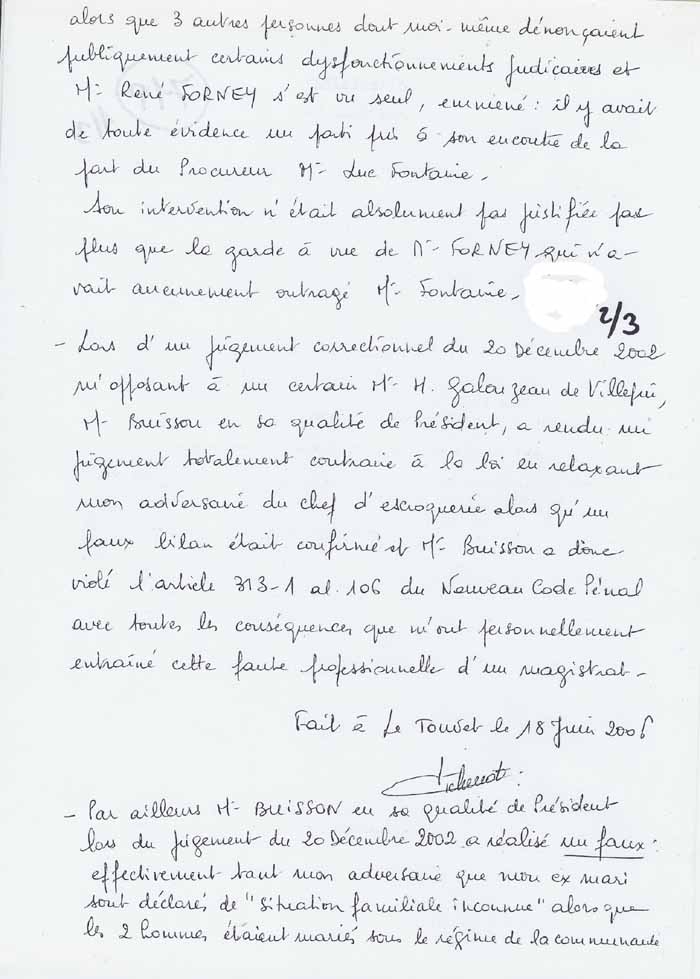 alors que 3 autres personnes dont moi-même dénonçaient
publiquement certains dysfonctionnements Judicaires et
Mr René FORNEY s'est vu seul, emmené : il y avait
de toute évidence un parti pris à son encontre de la
part du Procureur Mr Luc Fontaine.
Son intervention n'était absolument pas justifiée pas
plus que la garde à vue de Mr FORNEY qui n'a-
vait aucunement outragé Mr Fontaine.
2/3
- Lors d'un jugement correctionnel du 20 Décembre 2002
m'opposant à un certain Mr H. Galouzeau de Villepin,
Mr Buisson en sa qualité de Président, a rendu un
jugement totalement contraire à la loi en relaxant
mon adversaire du chef d'escroquerie alors qu'un
faux bilan était confirmé et Mr Buisson a donc
violé l'article 313-1 al. 106 du Nouveau Code Pénal
avec toutes les conséquences que m'ont personnellement
entraîné cette faute professionnelle d'un magistrat.
Fait à Le Touvet le 18 Juin 2006
- Par ailleurs Mr BUISSON en sa qualité de Président
lors du jugement du 20 Décembre 2002 a réalisé un faux :
effectivement tant mon adversaire que mon ex mari
sont déclarés de "situation familiale inconnue" alors que
les 2 hommes étaient mariés sous le régime de la communauté